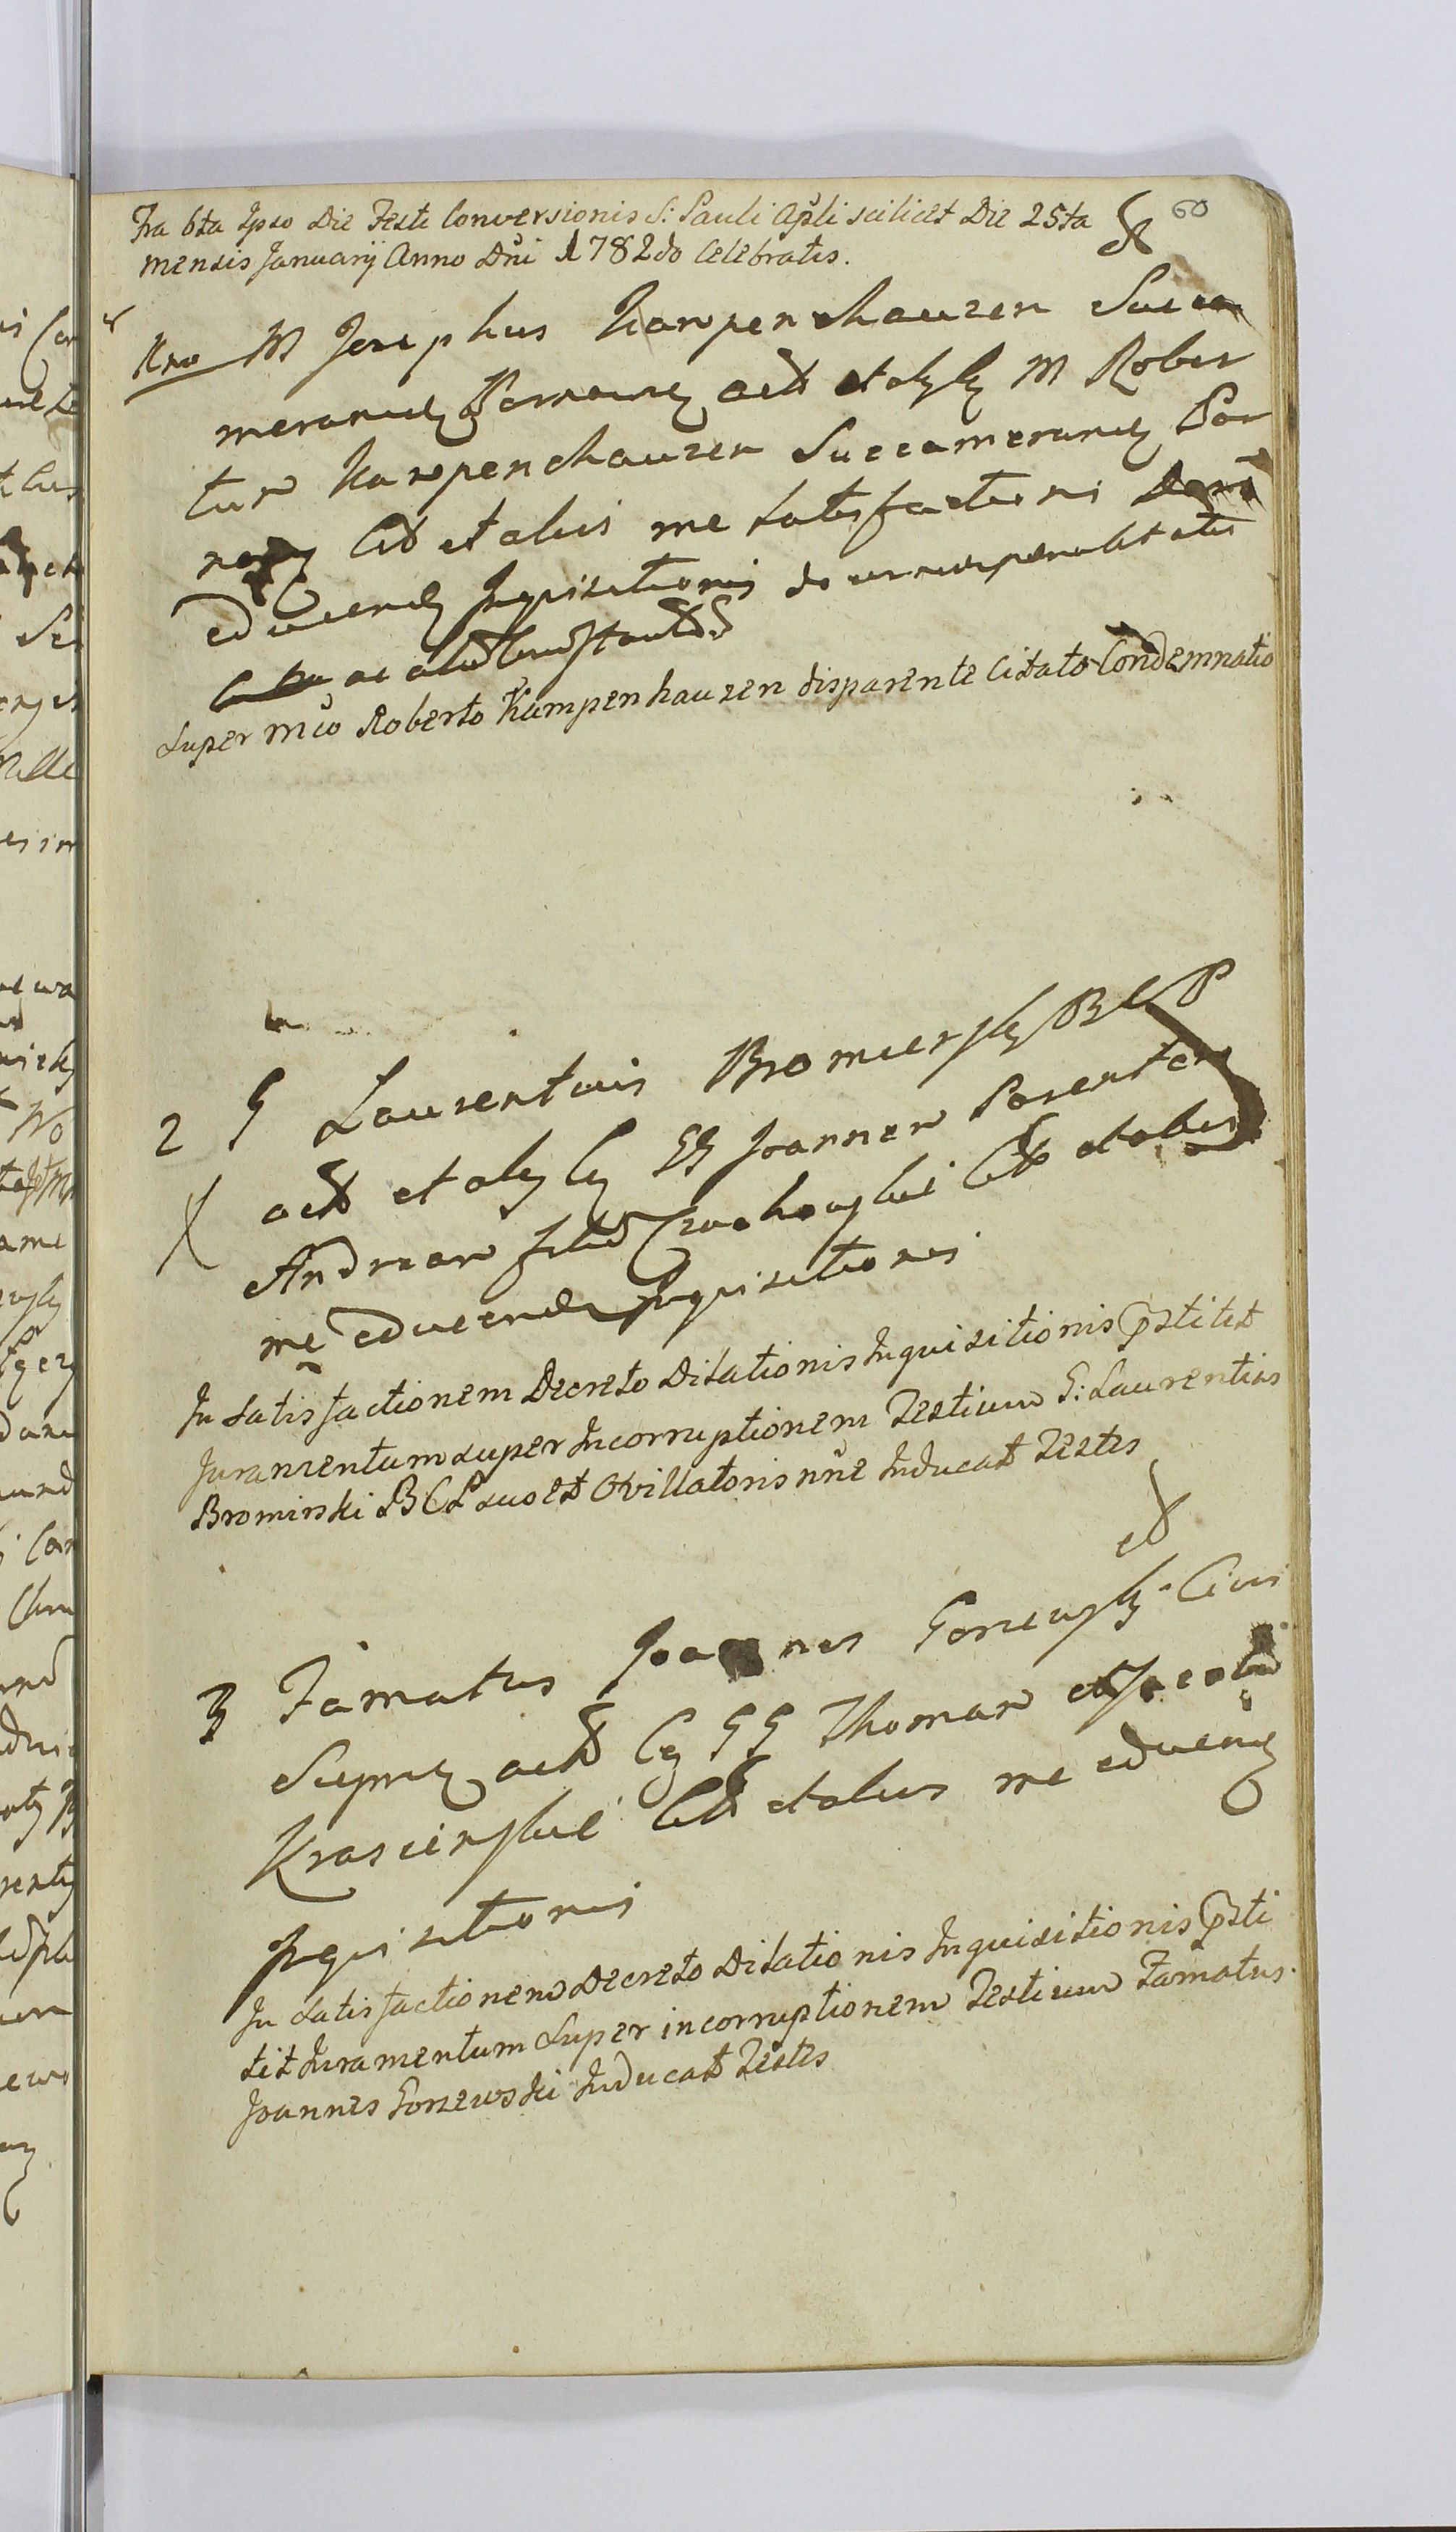 60
Fra 6ta Ipso Die Festi Conversionis S: Pauli Apli scilicet Die 25ta
mensis January Anno Dni 1782do Celebratis.
1mo M Josephus Kampenhauzen Succa
merarius Parnavie act et aly Cy M Rober
tum Kampenhauzen Succamerarius Par
navie Citt et alius me satisfactionis
educend Inquisitionis
ac
Super Mco Roberto Kampenhauzen disparente Citato Condemnatio
2 G Laurentius Bromirsky B C P
actt et aly Cy GG Joannem Parentem
Andream filium Citt et alius
me educend Inquisitionis
In Satisfactionem Decreto Dilationis Inquisitionis pstitit
Juramentum super Incorruptionem Testium G: Laurentius
Bromirski BCP suo et Ovillatoris nne Inducat Testes
3 Famatus Joannes Gorzewsky Civis
actt Cy GG Thomam et Jacobum
Krasinskie Citt et alius me educeng
Inquisitionis
In Satisfactionem Decreto Dilationis Inquisitionis psti
tit Juramentum Super incorruptionem Testium Famatus
Joannes Gorzewski Inducat Testes